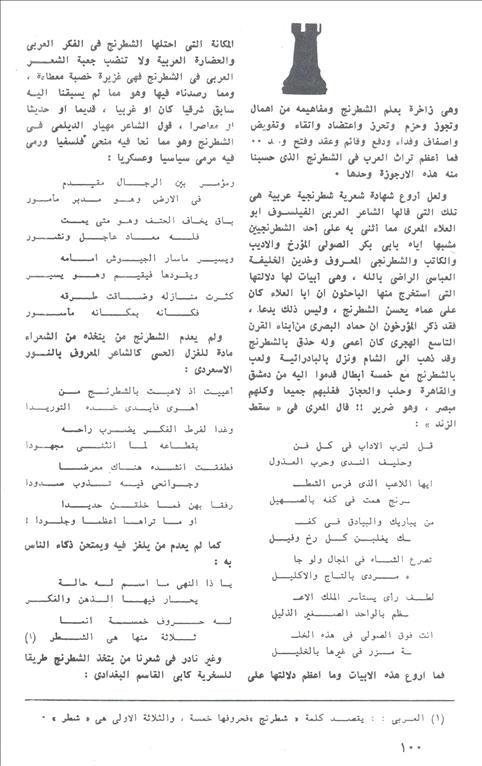 وهى زاخرة بعلم الشطرنج ومفاهيمه من اهمال
وتجوز وحزم وتحرز واعتضاد واتقاء وتفويض
واصفاف وفداء ودفع وقائم وعقد وفتح و..
فما أعظم تراث العرب فى الشطرنج الذى حسبنا
منه هذه الارجوزة وحدها ٠
ولعل أروع شهادة شعرية شطرنجية عربية هى
تلك التى قالها الشاعر العربى الفيلسوف ابو
العلاء المعرى مما أثنى به على أحد الشطرنجيين
مشبها اياه بابى بكر الصولى المؤرخ والاديب
والكاتب والشطرنجى المعروف وخدين الخليفة
العباسى الراضى بالله ، وهى أبيات لها دلالتها
التى استخرج منها الباحثون ان ابا العلاء كان
على عماه يحسن الشطرنج ، وليس ذلك بدعا ،
فقد ذكر المؤرخون ان حماد البصرى من أبناء القرن
التاسع الهجرى كان اعمى وله حذق بالشطرنج
وقد ذهب الى الشام ونزل بالبادرائية ولعب
بالشطرنج مع خمسة أبطال قدموا اليه من دمشق
والقاهرة وحلب والحجاز فغلبهم جميعا وكلهم
مبصر ، وهو ضرير !! قال المعرى فى « سقط
الزند » :
قل لترب الاداب فى كل فن
وحليف الندى وحرب العذول
ايها اللاعب الذى فرس الشطـ
ـرنج همت فى كفه بالصهيل
من يباريك والبيادق فى كفـ
ـك يغلبن كل رخ وفيل
تصرع الشاه فى المجال ولو جا
ء مردى بالتاج والاكليل
لطف رأى يستأسر الملك الاعـ
ـظم بالواحد الصغير الذليل
انت فوق الصولى فى هذه الخلـ
ـة مزر فى غيرها بالخليل
فما اروع هذه الابيات وما اعظم دلالتها على
المكانة التى احتلها الشطرنج فى الفكر العربى
والحضارة العربية ولا تنضب جعبة الشعر
العربى فى الشطرنج فهى غزيرة خصبة معطاءة ،
ومما رصدناه فيها وهو مما لم يسبقنا اليه
سابق شرقيا كان او غربيا ، قديما او حديثا
او معاصرا ، قول الشاعر مهيار الديلمى فى
الشطرنج وهو مما نحا فيه منحى فلسفيا ورمى
فيه مرمى سياسيا وعسكريا :
ومؤمر بين الرجال مقيدم
فى الارض وهو مدبر مأمور
باق يخاف الحتف وهو متى يمت
فله معاد عاجل ونشور
ويسير ماسار الجيوش امامه
ويقودها فيقيم وهو يسير
كثرت منازله وضاقت طرقه
فكانه بمكانه مأسور
ولم يعدم الشطرنج من يتخذه من الشعراء
مادة للغزل الحسى كالشاعر المعروف بالنور
الاسعردى :
أعييت اذ لاعبت بالشطرنج من
أهوى فأبدى خده التوريدا
وغدا لفرط الفكر يضرب راحه
بقطاعه لما انثنى مجهودا
فطفقت انشده هناك معرضا
وجوانحى فيه تذوب صدودا
رفقا بهن فما خلقن حديدا
او ما تراها اعظما وجلودا !
كما لم يعدم من يلغز فيه ويمتحن ذكاء الناس
به :
يا ذا النهى ما اسم له حالة
يحار فيها الذهن والفكر
له حروف خمسة انما
ثلاثة منها هى الشطر (١)
وغير نادر فى شعرنا من يتخذ الشطرنج طريقا
للسخرية كابى القاسم البغدادى :
(١) العربى : : يقصد كلمة « شطرنج » فحروفها خمسة ، والثلاثة الاولى هى « شطر » ٠
١٠٠